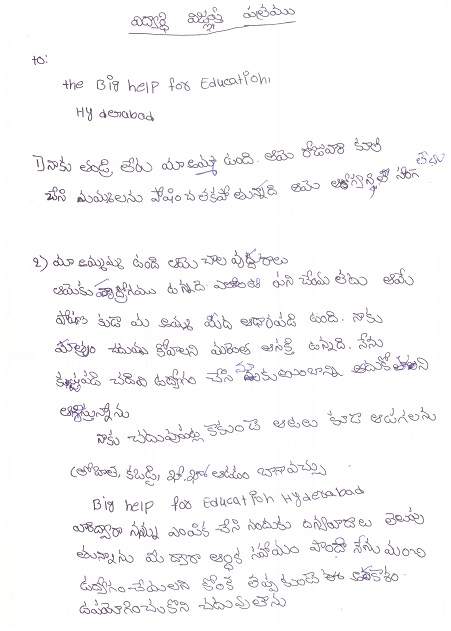 విద్యార్థి విజ్ఞప్తి పత్రము
to:
the Big help for Education,
Hyderabad
1) నాకు తండ్రి లేరు మా అమ్మ ఉంది. ఆమె రోజువారి కూలి
చేసి మమ్ములను పోషించలేకపోతున్నది ఆమె ఆరోగ్యం సరిగా లేదు
2) మా అమ్మమ్మ ఉంది ఆమె చాల వృద్ధురాలు
ఆమెకు ఉన్నది. పని చేయలేదు ఆమె
పోషణ కుడా మా అమ్మ మీద ఆధారపడి ఉంది. నాకు
మాత్రం చదువు కోవాలని మరింత ఆసక్తి ఉన్నది. నేను
కష్టపడి చదివి ఉద్యోగం చేసి మా కుటుంబాన్ని ఆదుకోవాలని
ఆశిస్తున్నాను
నాకు చదువు కాకుండె ఆటలు కూడా ఆడగలను
(కబడ్డి, ఖో.ఖో ఆడటం బాగావచ్చు)
Big help for Education Hyderabad
వారిద్వారా నన్ను ఎంపిక చేసి నందుకు ధన్యవాదాలు తెలుపు
తున్నాను మీ ద్వారా ఆర్థిక సహాయం పొంది నేను మంచి
ఉద్యోగం చేయాలని కోరిక తప్పకుండె ఈ అవకాశం
ఉపయోగించుకొని చదువుతాను